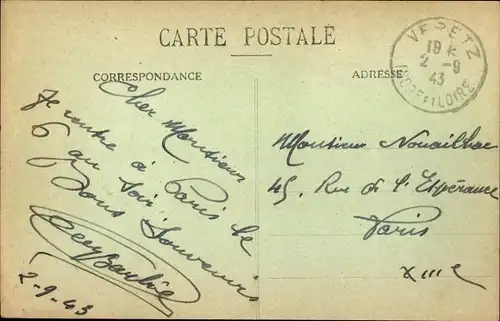 CARTE POSTALE
CORRESPONDANCE
ADRESSE
VERETZ
19 H
2 - 9
43
INDRE ET LOIRE
Cher Monsieur
Je rentre à Paris le
6 au soir.
Bons Souvenirs
2-9-43
Monsieur Nouailhac
45, Rue de l'Espérance
Paris
XIIIe